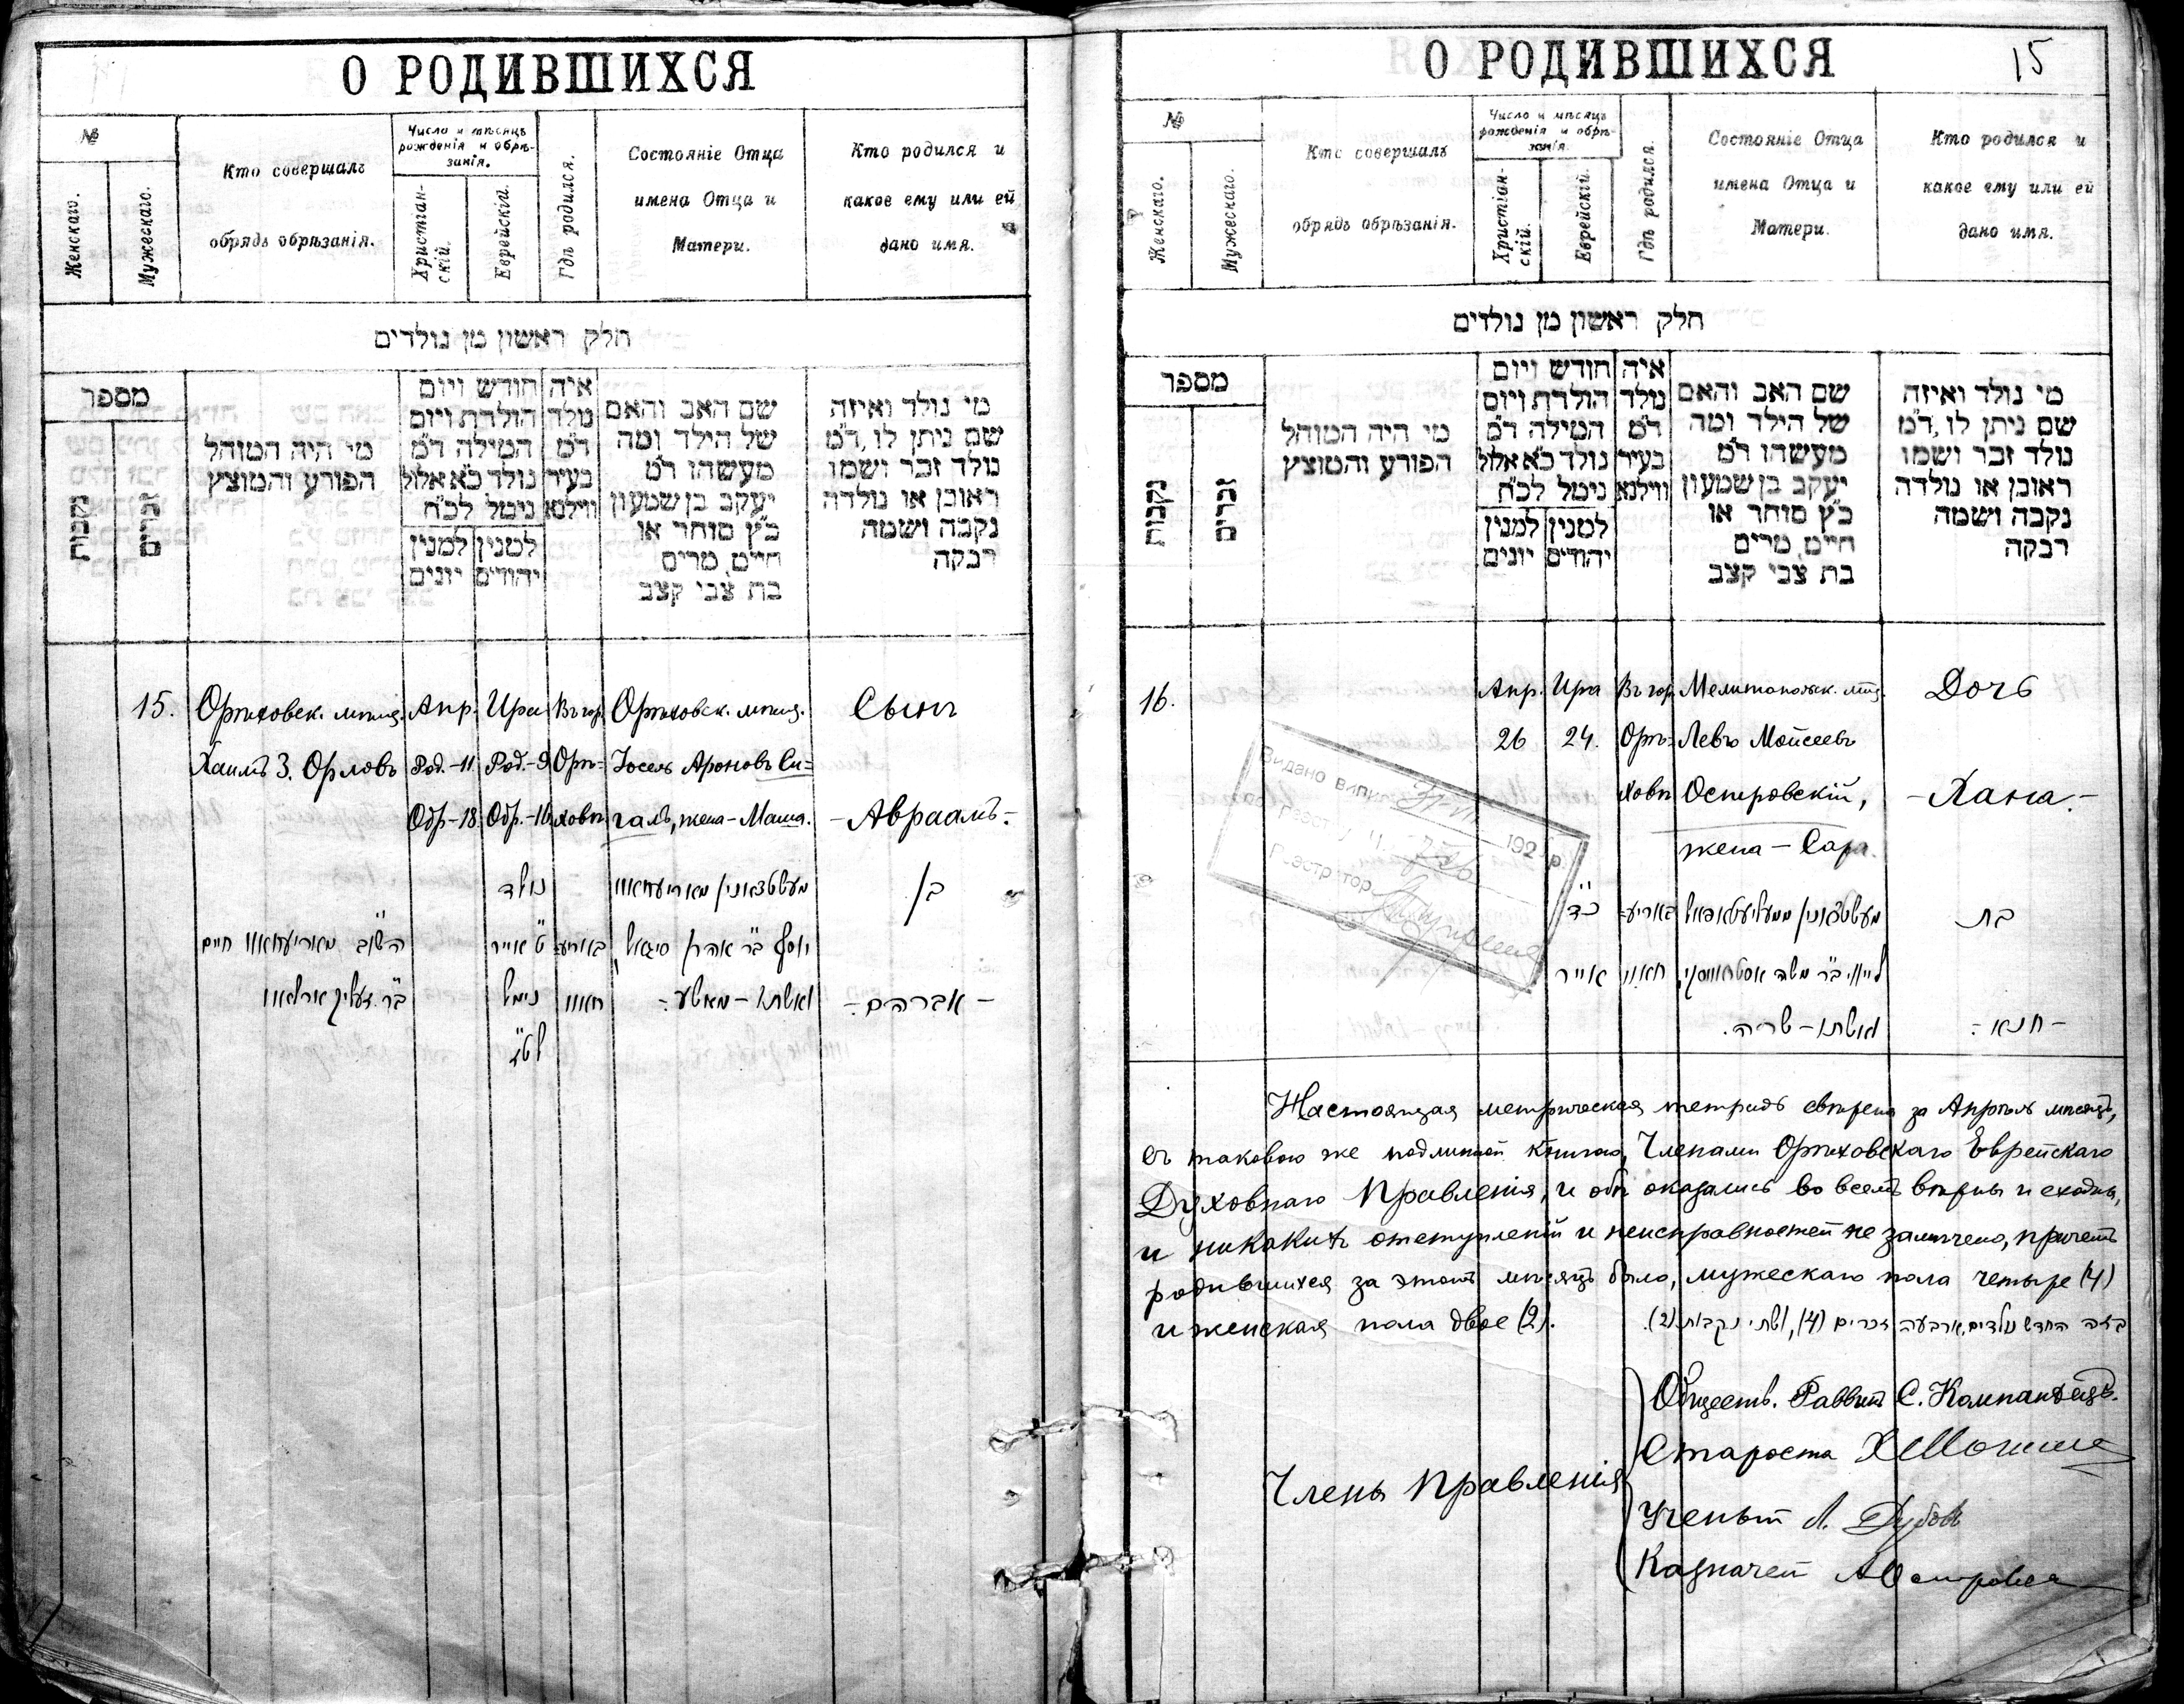 О РОДИВШИХСЯ
№
Женскаго.
Мужескаго.
Кто совершалъ
обрядъ обрѣзанія.
Число и мѣсяцъ
рожденія и обрѣ-
занія.
Христіан-
скій.
Еврейскій.
Гдѣ родился.
Состояніе Отца
имена Отца и
Матери.
Кто родился и
какое ему или ей
дано имя.
חלק ראשון מן נולדים
מספר
נקבות
זכרים
מי היה המוהל
הפורע והמוצץ
חודש ויום
הולדת ויום
המילה ד״מ
נולד כ״א אלול
נימל לכ״ח
למנין יונים
למנין יהודים
איה
נולד
ד״מ
בעיר
ווילנא
שם האב והאם
של הילד ומה
מעשהו ד״מ
יעקב בן שמעון
כ״ץ סוחר או
חיים, מרים
בת צבי קצב
מי נולד ואיזה
שם ניתן לו, ד״מ
נולד זכר ושמו
ראובן או נולדה
נקבה ושמה
רבקה
15. Орѣховск. мѣщ. Апр. Ира Въ гор. Орѣховск. мѣщ. Сынъ
Хаимъ З. Орловъ Род.-11 Род.-9 Орѣ- Іосель Ароновъ Си=
Обр-18 Обр.-16 ховѣ галъ, жена - Маша. - Авраамъ. -
נולד
בן
השו״ב מאריעחאוו חיים
ט׳ אייר
באריע
יוסף ב״ר אהרן סיגאל,
נימול
חאוו
ואשתו - מאשע.
- אברהם. -
לט״ז
О РОДИВШИХСЯ
15
№
Женскаго.
Мужескаго.
Кто совершалъ
обрядъ обрѣзанія.
Число и мѣсяцъ
рожденія и обрѣ-
занія.
Христіан-
скій.
Еврейскій.
Гдѣ родился.
Состояніе Отца
имена Отца и
Матери.
Кто родился и
какое ему или ей
дано имя.
חלק ראשון מן נולדים
מספר
נקבות
זכרים
מי היה המוהל
הפורע והמוצץ
חודש ויום
הולדת ויום
המילה ד״מ
נולד כ״א אלול
נימל לכ״ח
למנין יונים
למנין יהודים
איה
נולד
ד״מ
בעיר
ווילנא
שם האב והאם
של הילד ומה
מעשהו ד״מ
יעקב בן שמעון
כ״ץ סוחר או
חיים, מרים
בת צבי קצב
מי נולד ואיזה
שם ניתן לו, ד״מ
נולד זכר ושמו
ראובן או נולדה
נקבה ושמה
רבקה
16. Апр. Ира Въ гор. Мелитопольск. мѣщ. Дочь
26 24. Орѣ- Левъ Мойсеевъ
ховѣ Островскій, - Хана. -
жена - Сара.
Видано випис
192 р.
כ״ד
באריע
בת
אייר
חאוו
לייזר ב״ר משה אסטראווסקי,
ואשתו - שרה.
- חנא -
Настоящая метрическая тетрадь свѣрена за Апрѣль мѣсяцъ,
съ таковою же подлинной книгою, Членами Орѣховскаго Еврейскаго
Духовнаго Правленія, и обѣ оказались во всемъ вѣрны и сходны,
и никакихъ отступленій и неисправностей не замѣчено, причемъ
родившихся за этотъ мѣсяцъ было, мужескаго пола четыре (4)
и женская пола двое (2).
בזה החדש נולדים, ארבעה זכרים (4), ושתי נקבות (2).
Члены Правленія
Обществ. Раввинъ С. Компанѣецъ.
Староста
Ученый Л. Дубовъ
Казначей А Островскій